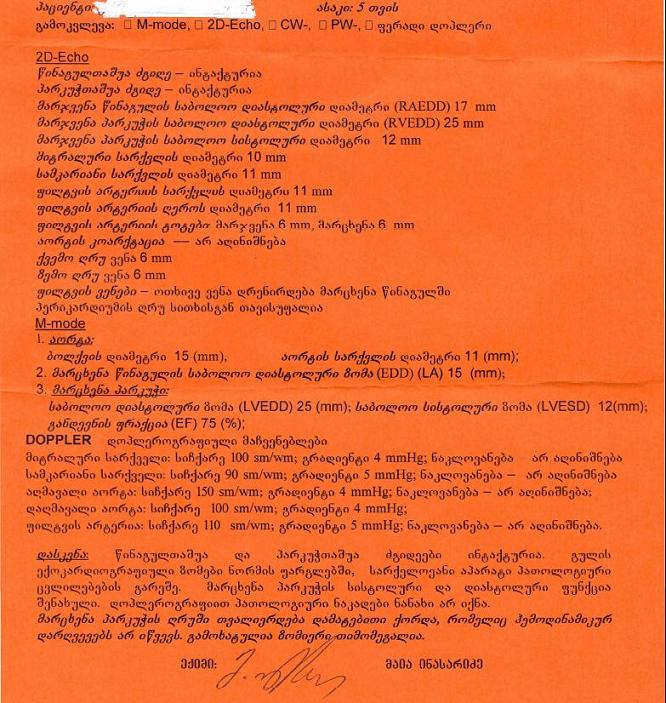 პაციენტი: ასაკი: 5 თვის
გამოკვლევა: □ M-mode, □ 2D-Echo □ CW-, □ PW-, □ ფერადი დოპლერი
2D-Echo
წინაგულთაშუა ძგიდე – ინტაქტურია
პარკუჭთაშუა ძგიდე – ინტაქტურია
მარჯვენა წინაგულის საბოლოო დიასტოლური დიამეტრი (RAEDD) 17 mm
მარჯვენა პარკუჭის საბოლოო დიასტოლური დიამეტრი (RVEDD) 25 mm
მარჯვენა პარკუჭის საბოლოო სისტოლური დიამეტრი 12 mm
მიტრალური სარქვლის დიამეტრი 10 mm
სამკარიანი სარქვლის დიამეტრი 11 mm
ფილტვის არტერიის სარქვლის დიამეტრი 11 mm
ფილტვის არტერიის ღეროს დიამეტრი 11 mm
ფილტვის არტერიის ტოტები: მარჯვენა 6 mm, მარცხენა 6 mm
აორტის კოარქტაცია — არ აღინიშნება
ქვემო ღრუ ვენა 6 mm
ზემო ღრუ ვენა 6 mm
ფილტვის ვენები – ოთხივე ვენა დრენირდება მარცხენა წინაგულში
პერიკარდიუმის ღრუ სითხისგან თავისუფალია
M-mode
1. აორტა:
ბოლქვის დიამეტრი 15 (mm), აორტის სარქვლის დიამეტრი 11 (mm);
2. მარცხენა წინაგულის საბოლოო დიასტოლური ზომა (EDD) (LA) 15 (mm);
3. მარცხენა პარკუჭი:
საბოლოო დიასტოლური ზომა (LVEDD) 25 (mm); საბოლოო სისტოლური ზომა (LVESD) 12(mm);
განდევნის ფრაქცია (EF) 75 (%);
DOPPLER დოპლეროგრაფიული მაჩვენებლები
მიტრალური სარქველი: სიჩქარე 100 sm/wm; გრადიენტი 4 mmHg; ნაკლოვანება – არ აღინიშნება
სამკარიანი სარქველი: სიჩქარე 90 sm/wm; გრადიენტი 5 mmHg; ნაკლოვანება – არ აღინიშნება
აღმავალი აორტა: სიჩქარე 150 sm/wm; გრადიენტი 4 mmHg; ნაკლოვანება – არ აღინიშნება;
დაღმავალი აორტა: სიჩქარე 100 sm/wm; გრადიენტი 4 mmHg;
ფილტვის არტერია: სიჩქარე 110 sm/wm; გრადიენტი 5 mmHg; ნაკლოვანება – არ აღინიშნება.
დასკვნა: წინაგულთაშუა და პარკუჭთაშუა ძგიდეები ინტაქტურია. გულის
ექოკარდიოგრაფიული ზომები ნორმის ფარგლებში, სარქველოვანი აპარატი პათოლოგიური
ცვლილებების გარეშე. მარცხენა პარკუჭის სისტოლური და დიასტოლური ფუნქცია
შენახული. დოპლეროგრაფიით პათოლოგიური ნაკადები ნანახი არ იქნა.
მარცხენა პარკუჭის ღრუში თვალიერდება დამატებითი ქორდა, რომელიც ჰემოდინამიკურ
დარღვევებს არ იწვევს. გამოხატულია ზომიერი თიმომეგალია.
ექიმი: მაია ინასარიძე